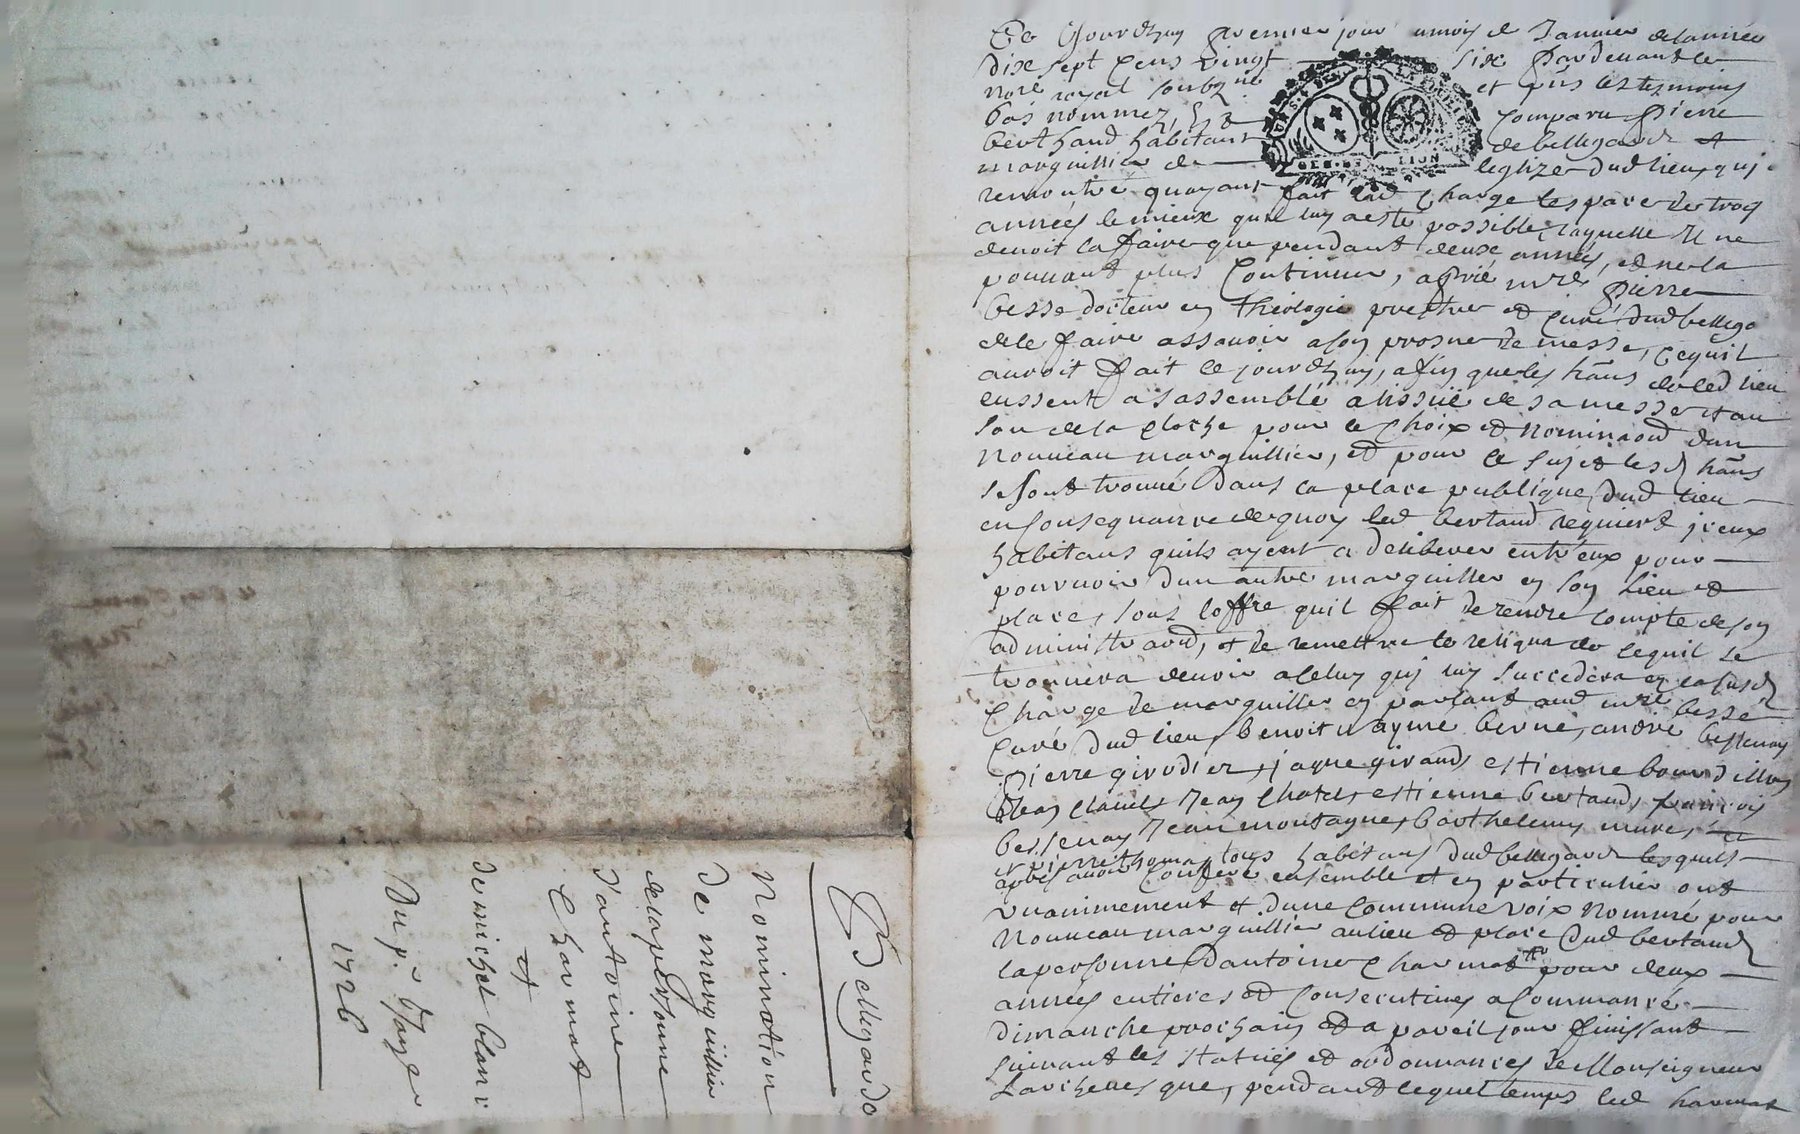 Ce Jourdhuy premier jour du mois de Janvier de lannée
dixe sept cens vingt six pardevant le
nore royal soubzné et pns les tesmoins
bas nommez, Est comparu pierre
berthaud habitant de bellegarde et
marguillier de leglize dud lieu, quj
remontre quayant fait lad charge lespace de trois
années le mieux quil luy a este possible, laquelle Il ne
devoit la faire que pendant deuxe années, et ne la
pouvant plus Continuer, a prié mre pierre
besse docteur en theologie prestre et curé dud bellega
de le faire assavoir a son prosne de messe, ce quil
auroit fait ce jourdhuy, afin que les hans dud lieu
eussent a sassemblé a lissüe de sa messe et au
son de la cloche pour le choix et nominaon dun
nouveau marguillier, et pour ce sujet lesd hans
se sont trouvé dans la place publique dud lieu
en consequance de quoy led bertaud requiert jceux
habitans quils ayent a deliberer entreux pour
pourvoir dun autre marguillier en son lieu et
place, sous loffre quil fait de rendre compte de son
administraon, et de remettre le reliqua de ce quil se
trouvera devoir a celuy quj luy succedera en la susd
charge de marguillier en parlant aud mre besse
curé dud lieu, benoit aymé berne, andré bessenay
pierre girodier, jaque giraud, estienne bourdillon
Jean claude, Jean chatel, estienne bertaud, francois
bessenay, Jean montagne, barthelemy mure,
et pierre thomas tous habitans dud bellegarde lesquels
apres avoir conferé ensemble et en particulier ont
unanimement et dune commune voix nommé pour
nouveau marguillier au lieu et place dud bertaud
la personne dantoine charmat pour deux
années entieres et consecutives a commancé
dimanche prochain et a pareil jour finissant
suivant les statues et ordonnances de Monseigneur
Larchevesque, pendant lequel temps led charmat
Bellegarde
Nomination
de marguillier
de la personne
dantoine
Charmat
et
de michel blanc
Du pr Janer
1726
GEN. DE LION